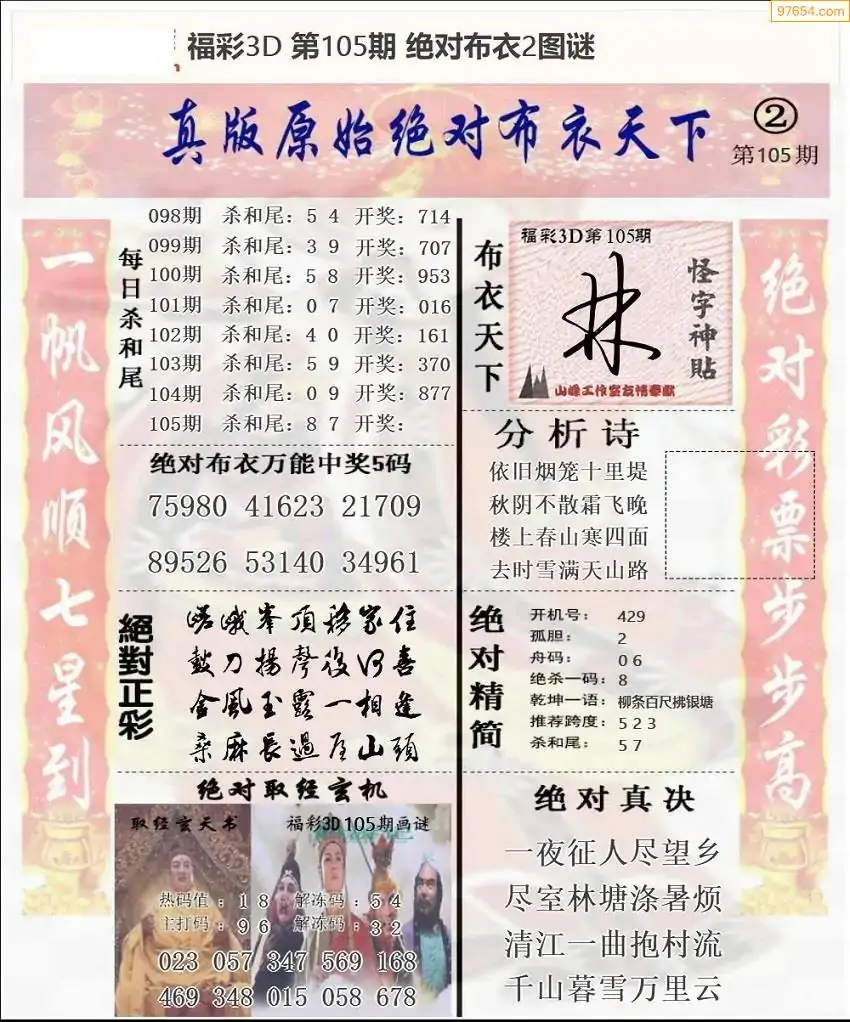 97654.com
福彩3D 第105期 绝对布衣2图谜
真版原始绝对布衣天下
②
第105期
一帆风顺七星到
每日杀和尾
098期 杀和尾：5 4 开奖：714
099期 杀和尾：3 9 开奖：707
100期 杀和尾：5 8 开奖：953
101期 杀和尾：0 7 开奖：016
102期 杀和尾：4 0 开奖：161
103期 杀和尾：5 9 开奖：370
104期 杀和尾：0 9 开奖：877
105期 杀和尾：8 7 开奖：
绝对布衣万能中奖5码
75980 41623 21709
89526 53140 34961
絕對正彩
峰頂移家住
鼓刀揚聲
金風玉露一相逢
桑麻長過屋山頭
绝对取经玄机
取经玄天书
福彩3D105期画谜
热码值：1 8 解冻码：5 4
主打码：9 6 解冻码：3 2
023 057 347 569 168
469 348 015 058 678
布衣天下
福彩3D第105期
怪字神貼
山峰工作室友情奉献
分析诗
依旧烟笼十里堤
秋阴不散霜飞晚
楼上春山寒四面
去时雪满天山路
绝对精简
开机号： 429
孤胆： 2
舟码： 0 6
绝杀一码：8
乾坤一语：柳条百尺拂银塘
推荐跨度：5 2 3
杀和尾： 5 7
绝对真决
一夜征人尽望乡
尽室林塘涤暑烦
清江一曲抱村流
千山暮雪万里云
绝对彩票步步高